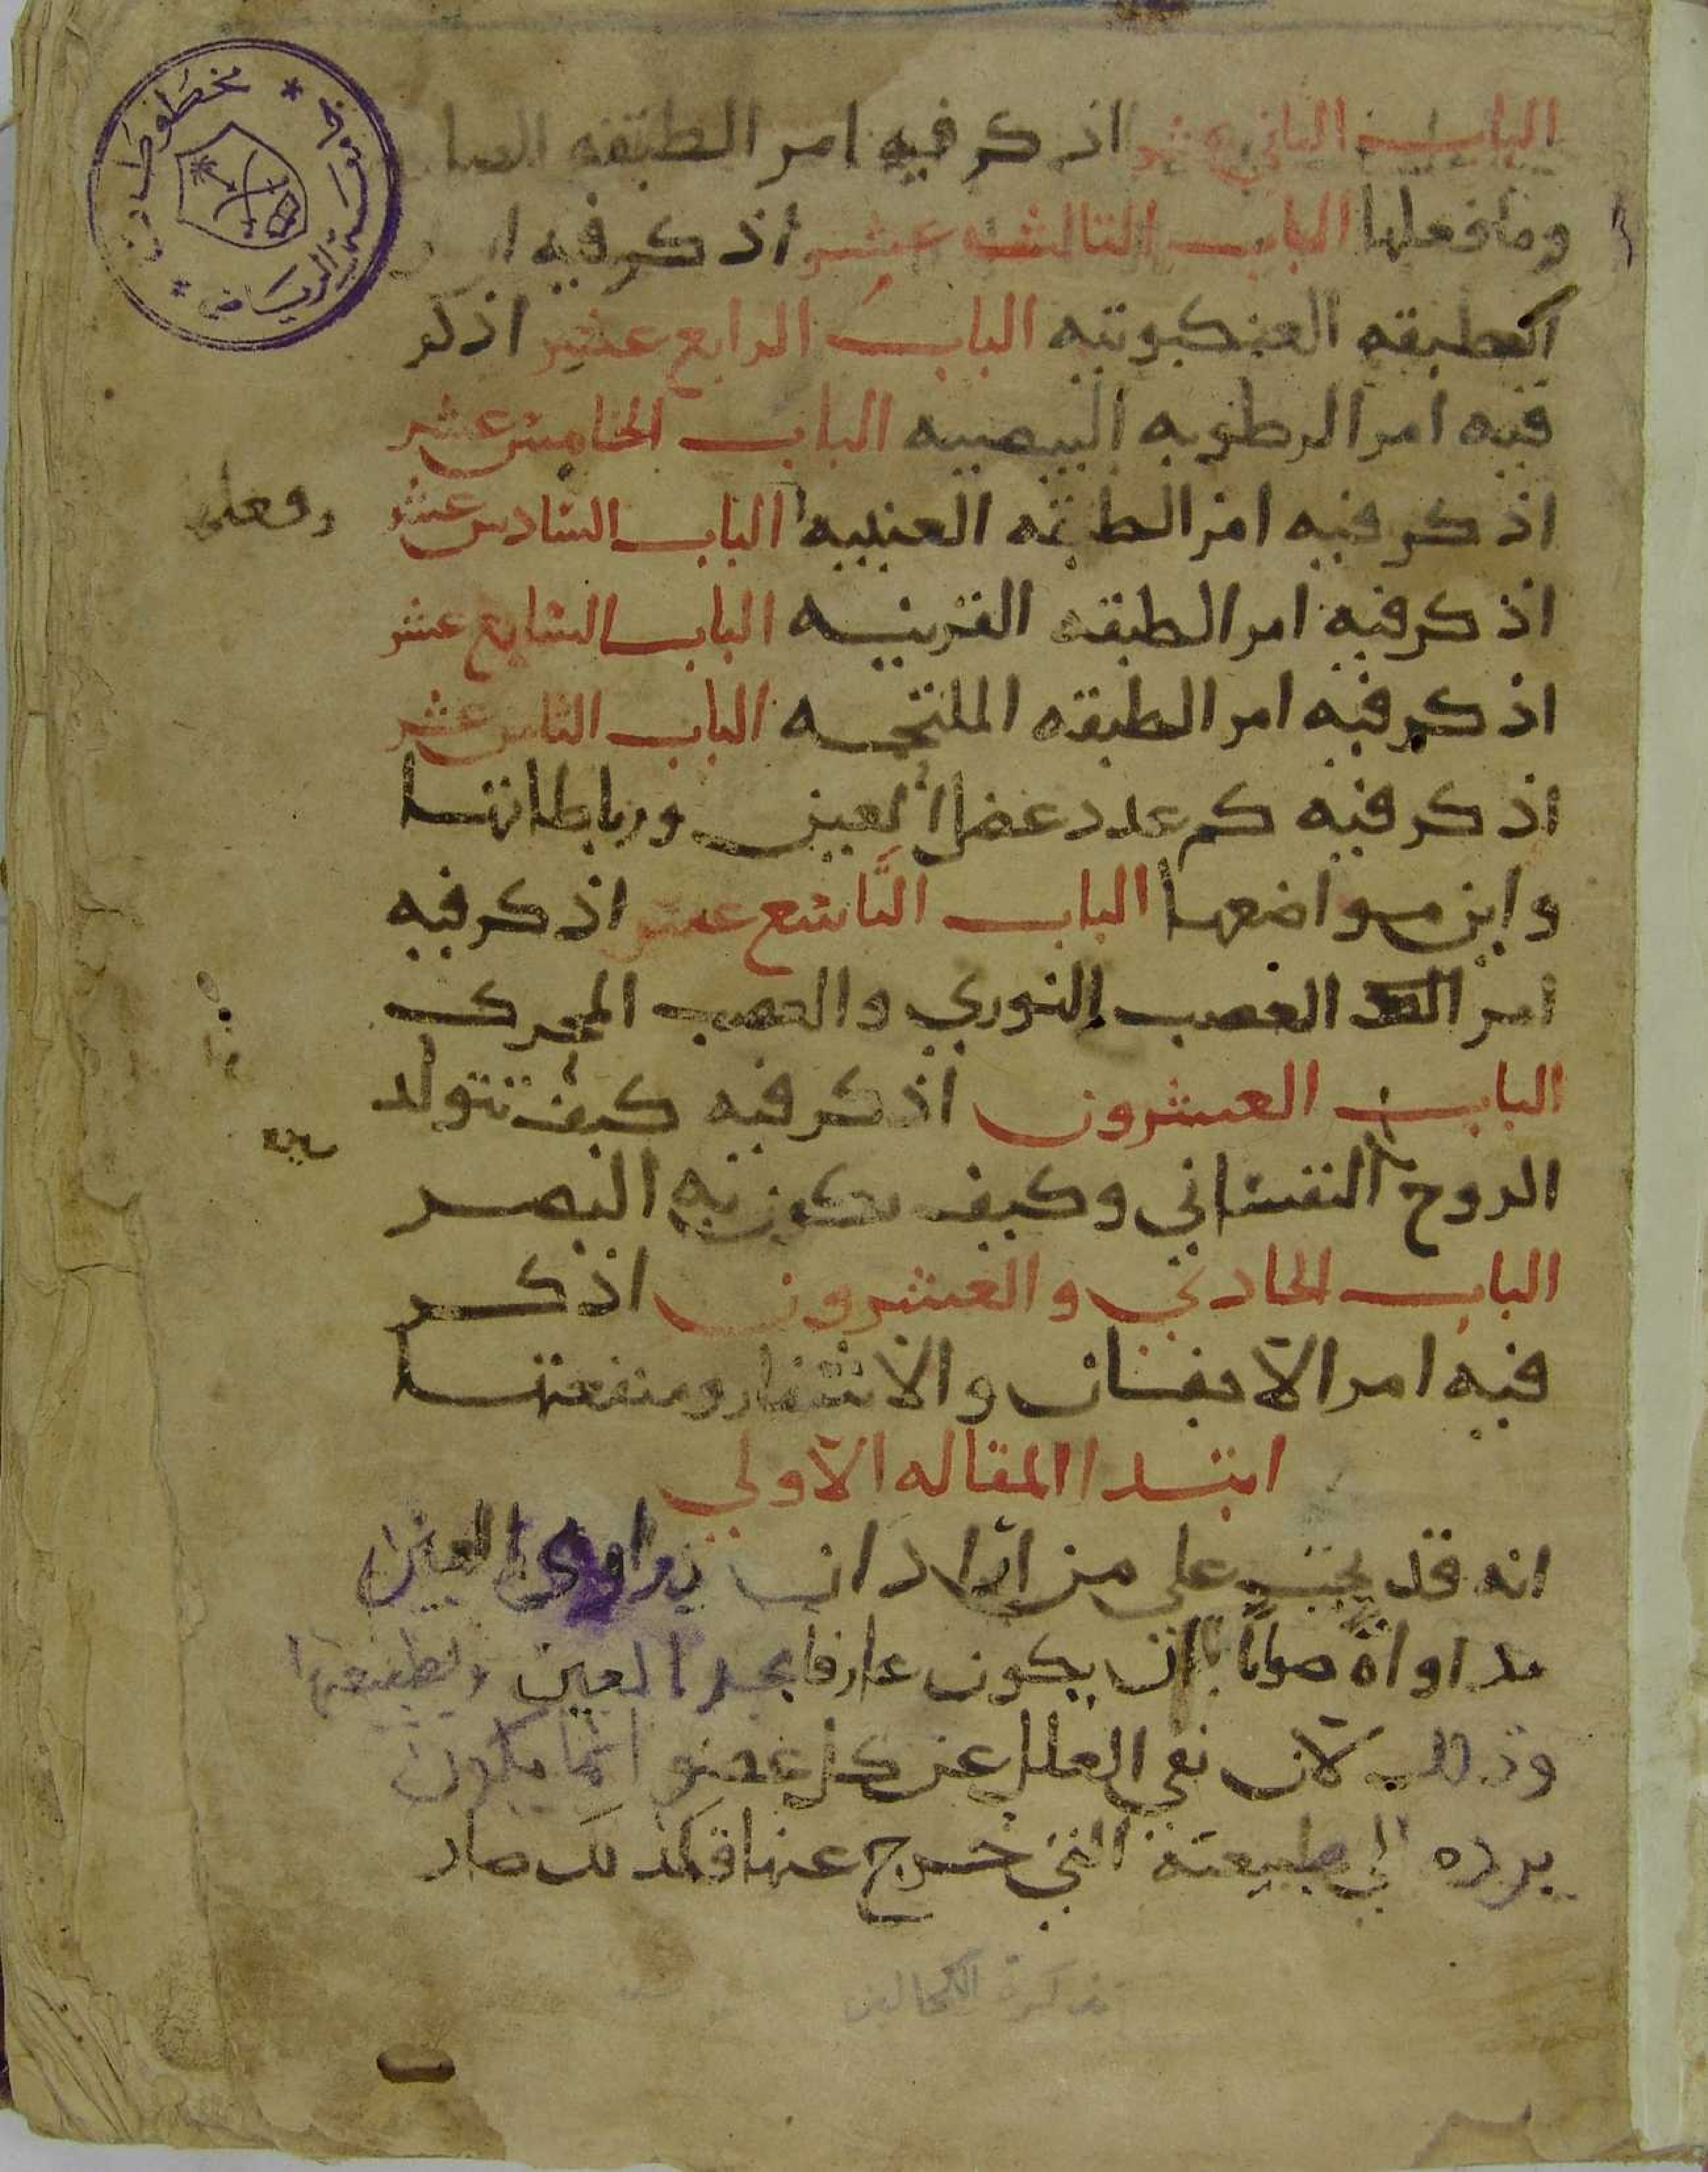 الباب الثاني عشر اذكر فيه امر الطبقه
وما فعلها الباب الثالث عشر اذكر فيه
الطبقه العنكبوتيه الباب الرابع عشر اذكر
فيه امر الرطوبه البيضيه الباب الخامس عشر
اذكر فيه امر الطبقه العنبيه الباب السادس عشر
وفعلها
اذكر فيه امر الطبقه القرنيه الباب السابع عشر
اذكر فيه امر الطبقه الملتحمه الباب الثامن عشر
اذكر فيه كم عدد عضل العين ورباطاتها
واين مواضعها الباب التاسع عشر اذكر فيه
امر العصب النوري والعصب المحرك
الباب العشرون اذكر فيه كيف تتولد
الروح النفساني وكيف يكون به البصر
الباب الحادي والعشرون اذكر
فيه امر الاجفان والاشفار ومنفعتها
ابتدا المقاله الاولي
انه قد يجب على من اراد ان يداوي العين
مداواة صوابا ان يكون عارفا بحد العين وبطبيعتها
وذلك لان نفي العلل عن كل عضو انما يكون
برده الي طبيعته التي خرج عنها فكذلك صار
تذكرة الكحالين
مخطوطات
الرياض